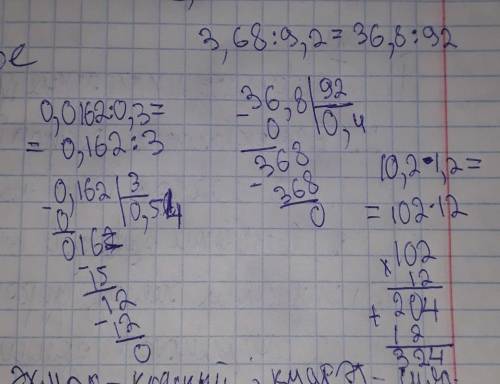 3,68:9,2=36,8:92
ое
0,0162:0,3=
= 0,162:3
- 0,162 | 3
0 | 0,54
0162
- 15
12
- 12
0
- 36,8 | 92
0 | 0,4
368
- 368
0
10,2•1,2=
= 102•12
102
x 12
204
+ 12
324